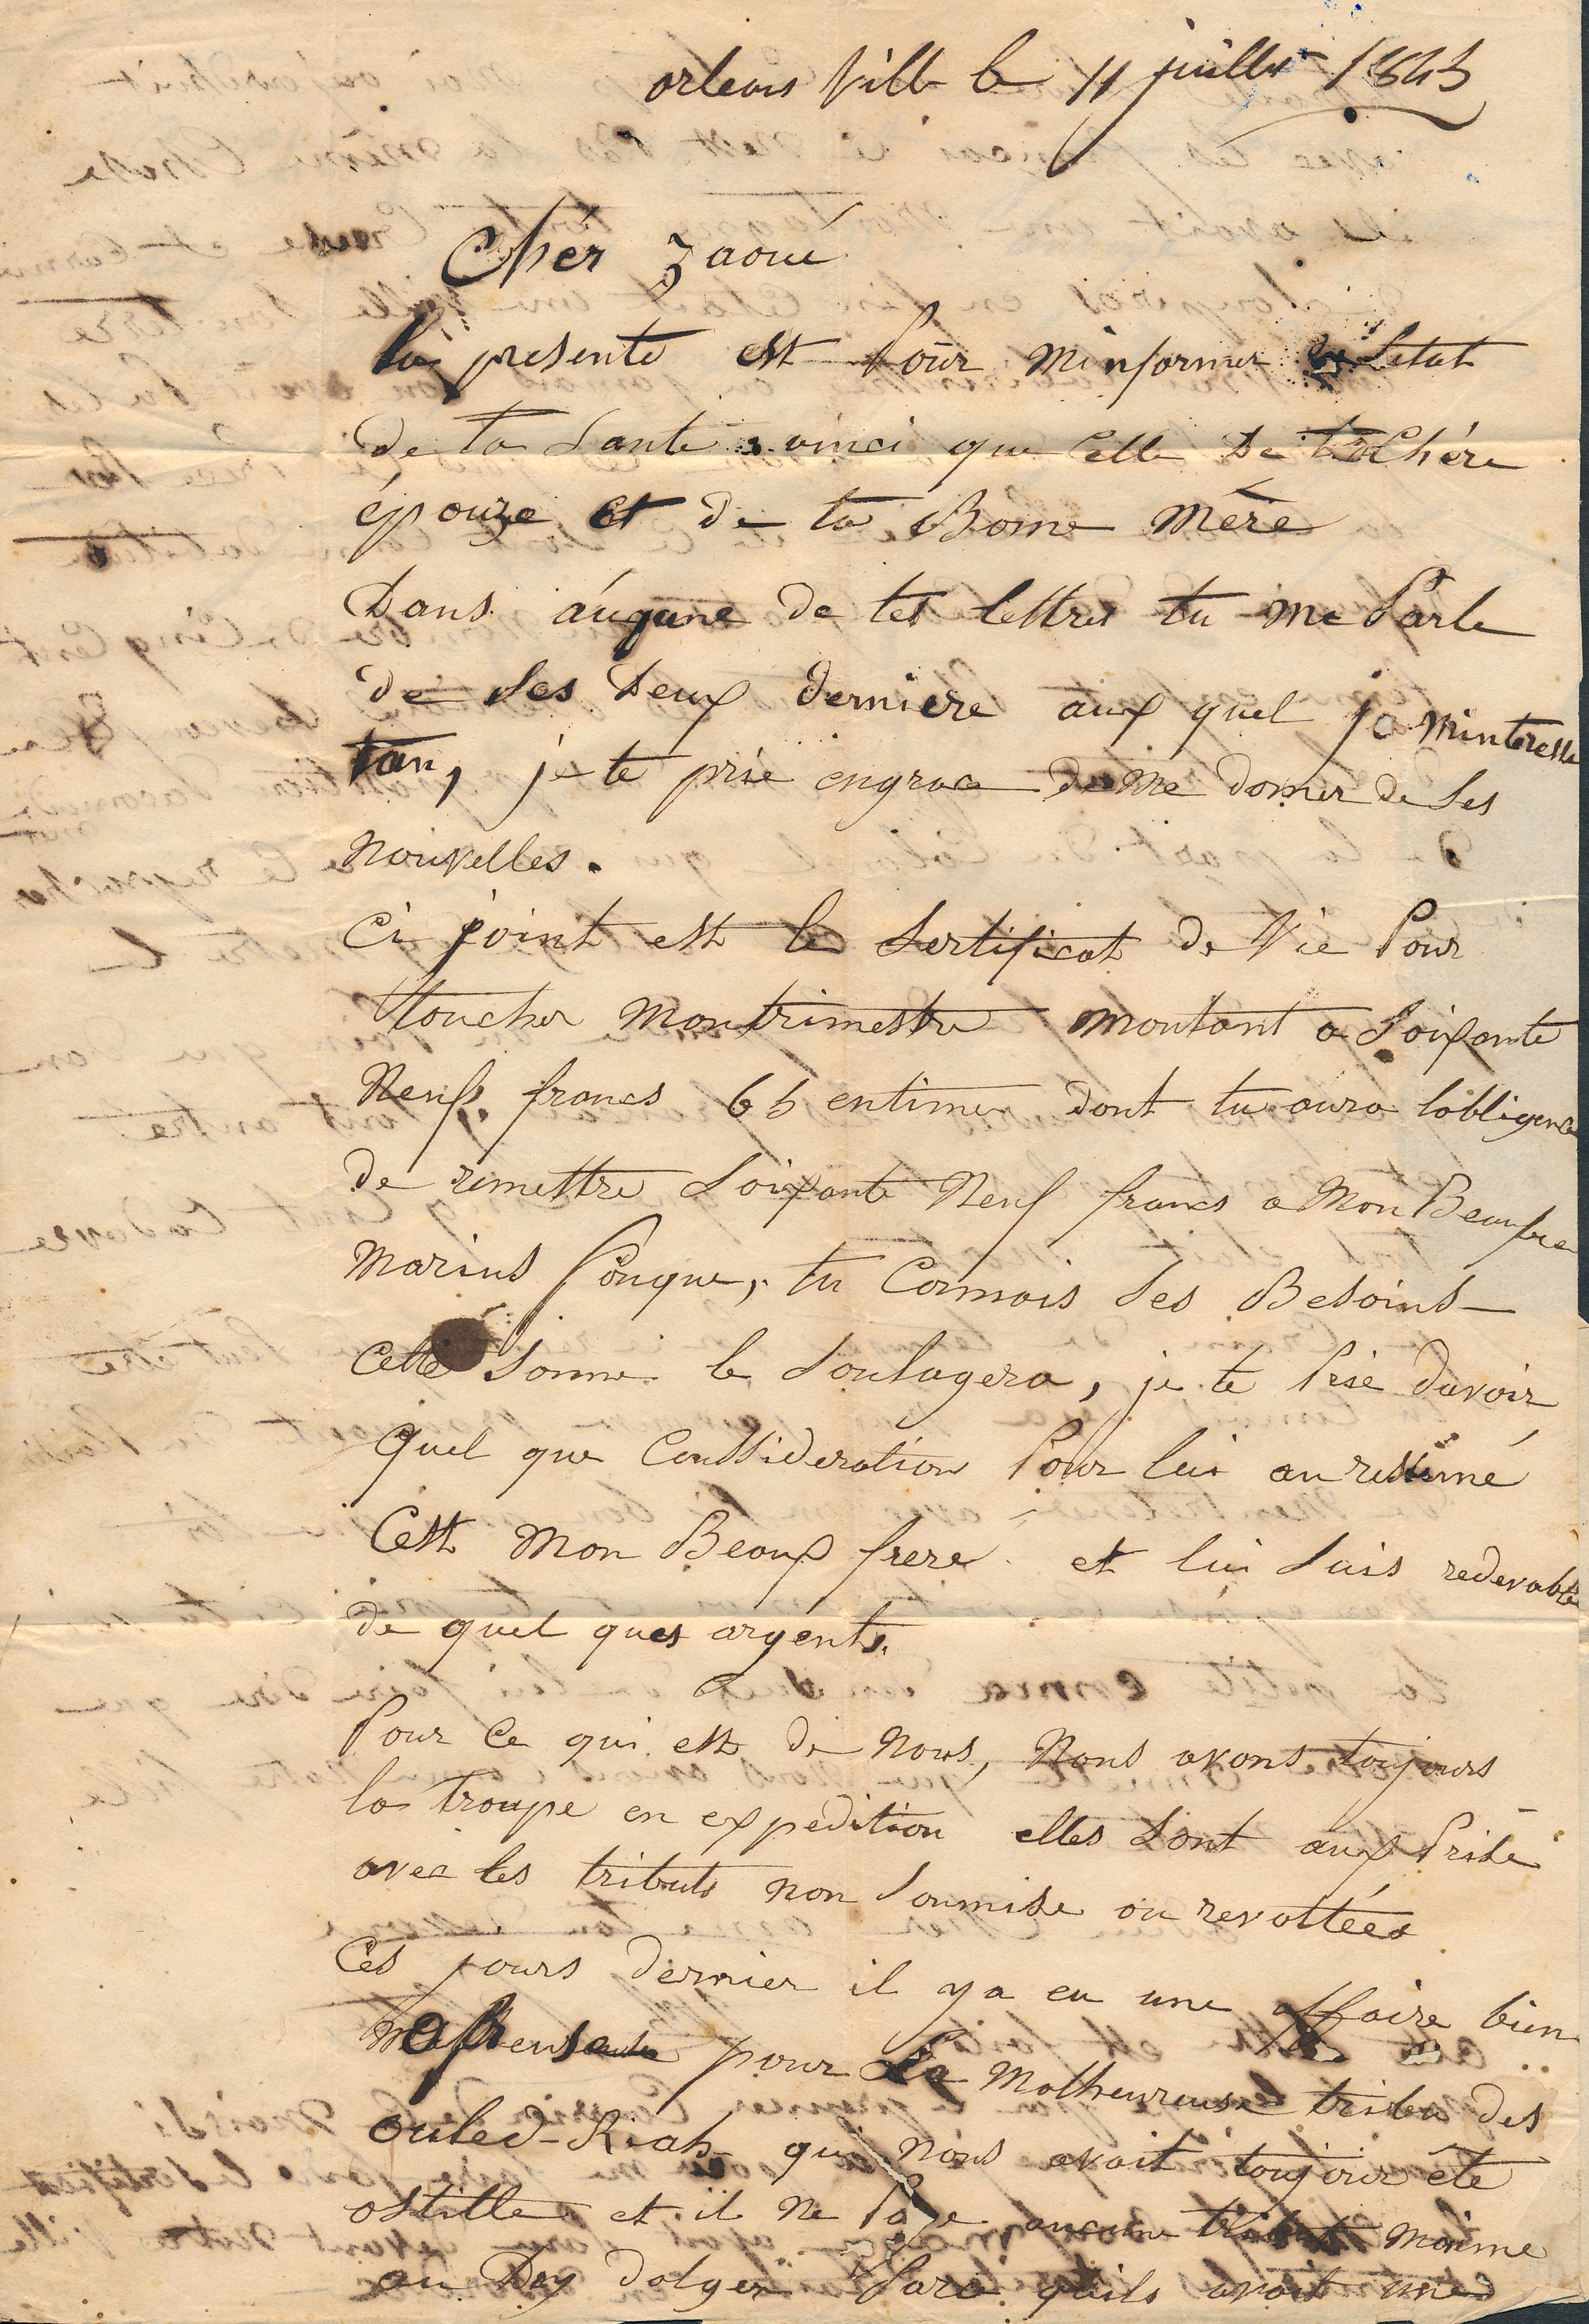 orleans Ville le 11 juillet 1845
Chér Zaoué
la presente est Pour minformer de Letat
de ta Santé ainci que celle de ta Chére
épouze et de ta Bonne Mère
Dans augune de tes lettres tu me Parle
de Ses deux derniere aux quel je minteresse
tan, je te prie engrace de me donner de Ses
nouvelles.
Ci joint est le Sertificat de Vie Pour
toucher mon trimestre montant a Soixante
Neuf francs 65 entimes dont tu aura lobligence
de remettre Soixante Neuf francs a Mon Beaufre
Marius Pouque, tu Connois Ses Besoins
cette Somme le Soulagera, je te Prie davoir
quel que Conssideration Pour lui au résumé
Cest mon Beaux frere et lui Suis redevable
de quel ques argents.
Pour Ce qui est de nous, Nous avons toujours
la troupe en expedition elles Sont aux Prise
avec les tributs non Soumise ou revoltées
Ces jours dernier il y a eu une affaire bien
pour la Malheureuse tribu des
ouled-Riah qui nous avait toujour été
ostille et il ne Paye aucune tribut même
au Dey dalger Parce quils avoit une